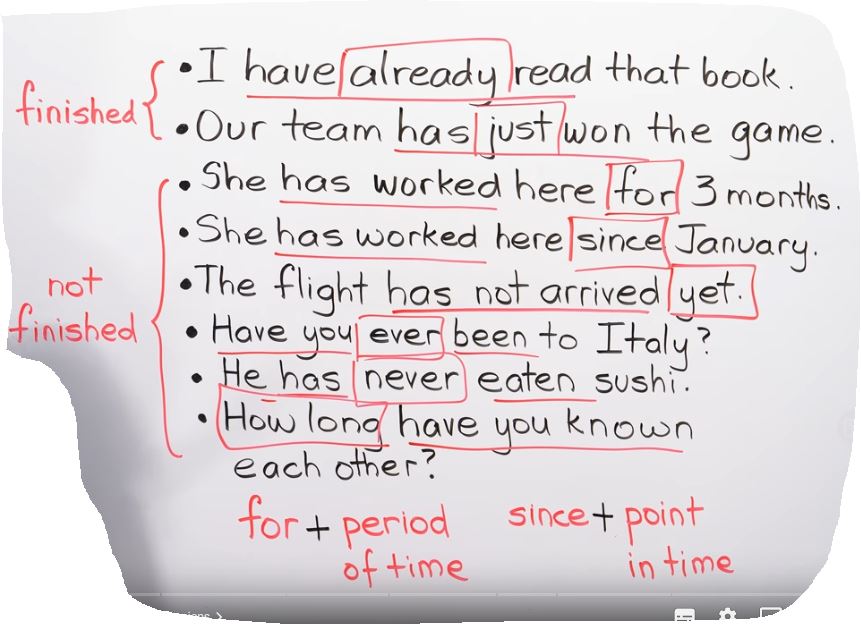 • I have already read that book.
finished { • Our team has just won the game.
• She has worked here for 3 months.
• She has worked here since January.
not finished { • The flight has not arrived yet.
• Have you ever been to Italy?
• He has never eaten sushi.
• How long have you known
each other?
for + period of time
since + point in time